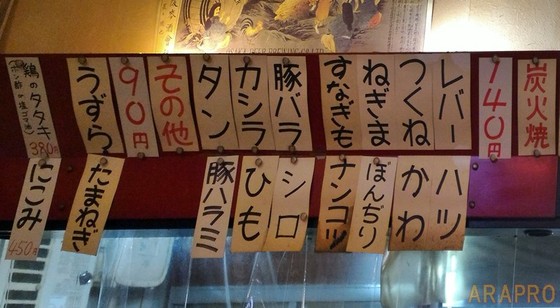 OSAKA BEER BREWING CO., LTD
炭火焼
140円
レバー
つくね
ねぎま
すなぎも
豚バラ
カシラ
タン
その他
90円
うずら
鶏のタタキ
380円
ハツ
かわ
ぼんぢり
ナンコツ
シロ
ひも
豚ハラミ
たまねぎ
にこみ
450円
ARAPRO